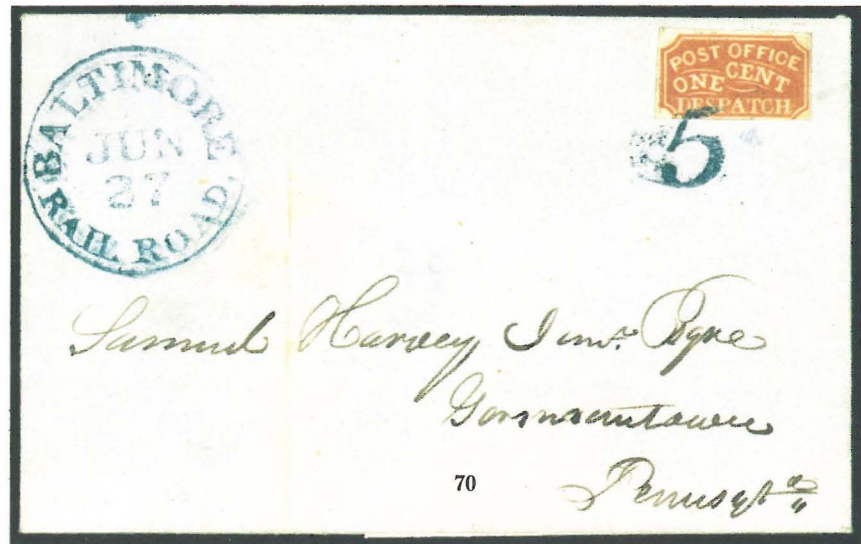 BALTIMORE
JUN
27
RAIL ROAD.
POST OFFICE
ONE CENT
DESPATCH
5
Samuel Harvey Junr.
Germantown
70